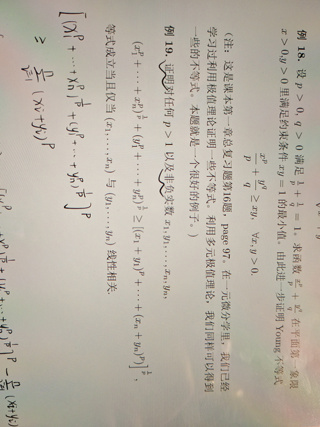 例 18. 设 p > 0, q > 0 满足 1/p + 1/q = 1。求函数 x^p/p + y^q/q 在平面第一象限
x > 0, y > 0 里满足约束条件 xy = 1 的最小值。由此进一步证明 Young 不等式
x^p/p + y^q/q ≥ xy, ∀x, y > 0.
(注:这是课本第一章总复习题第16题, page 97。在一元微分学里,我们已经
学习过利用极值理论证明一些不等式。利用多元极值理论,我们同样可以得到
一些的不等式。本题就是一个很好的例子。)
例 19. 证明对任何 p > 1 以及非负实数 x₁, y₁, ..., xₙ, yₙ,
(x₁^p + ··· + xₙ^p)^{1/p} + (y₁^p + ··· + yₙ^p)^{1/p} ≥ [(x₁ + y₁)^p + ··· + (xₙ + yₙ)^p]^{1/p},
等式成立当且仅当 (x₁, ..., xₙ) 与 (y₁, ..., yₙ) 线性相关.
[(x₁^p + ··· + xₙ^p)^{1/p} + (y₁^p + ··· + yₙ^p)^{1/p}]^p
≥ Σ_{i=1}^n (xᵢ + yᵢ)^p